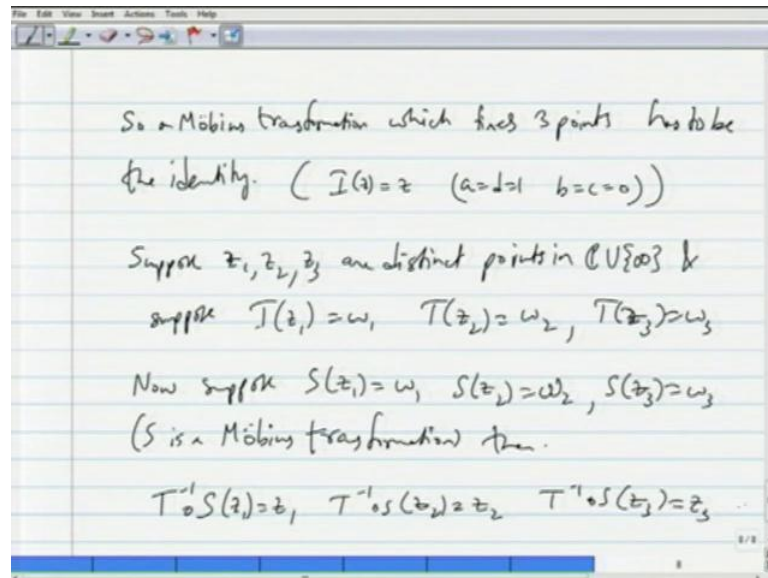 File Edit View Insert Actions Tools Help
So a Möbius trasformation which fixes 3 points has to be
the identity. ( I(z) = z (a=d=1 b=c=0))
Suppose z₁, z₂, z₃ are distinct points in ℂ∪{∞} &
suppose T(z₁) = ω₁ T(z₂) = ω₂, T(z₃) = ω₃
Now suppose S(z₁) = ω₁ S(z₂) = ω₂, S(z₃) = ω₃
(S is a Möbius trasformation) then.
T⁻¹∘S(z₁) = z₁ T⁻¹∘S(z₂) = z₂ T⁻¹∘S(z₃) = z₃
8/8
8